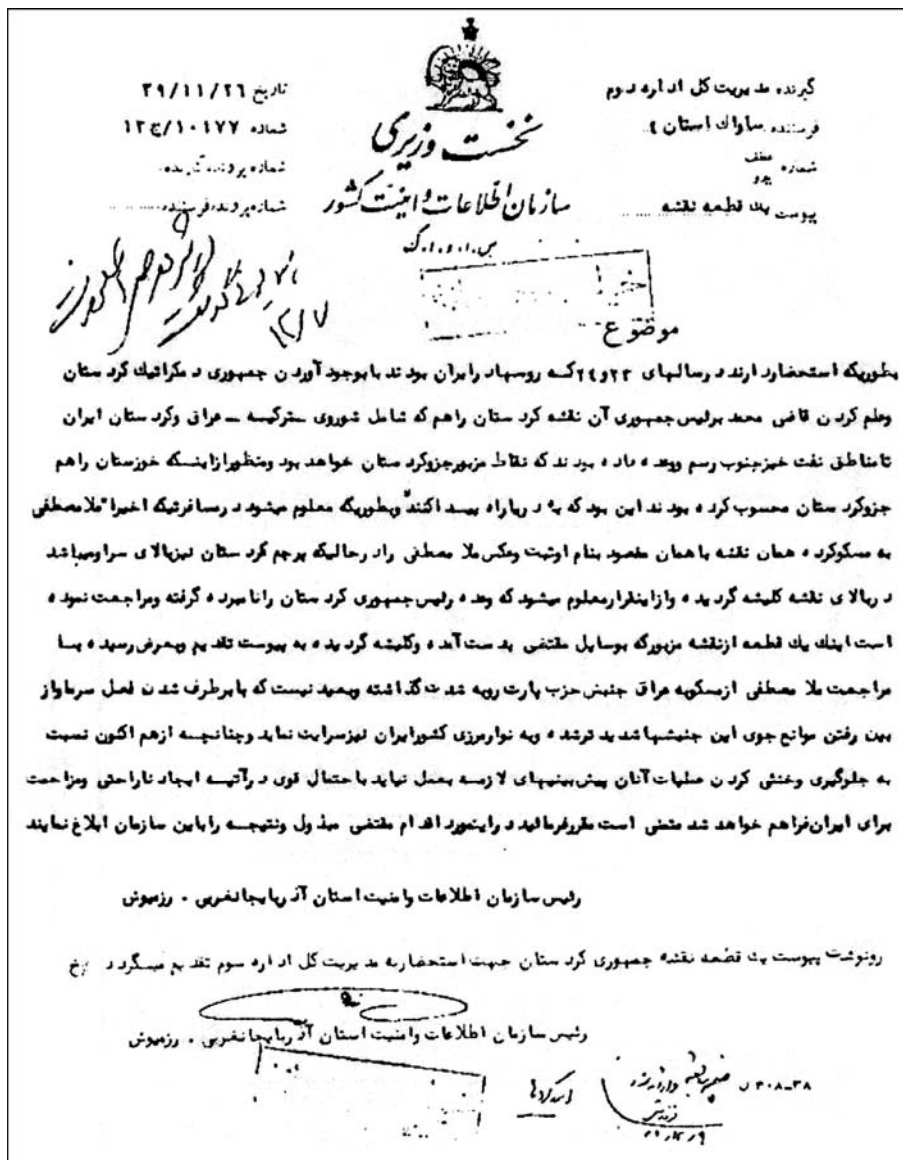 گیرنده مدیریت کل اداره دوم
فرستنده ساواك استان ٤
شماره عطف پیرو
پیوست یك قطعه نقشه
نخست وزیری
سازمان اطلاعات و امنیت کشور
س.ا.و.ا.ک
تاریخ ۳۹/۱۱/۲٦
شماره ۱۰۱۷۷/ج۱۲
شماره پرونده گیرنده
شماره پرونده فرستنده
۱۲/۷
موضوع
بطوریکه استحضار دارند در سالهای ۲۳ و ۲٤ که روسها در ایران بودند با بوجود آوردن جمهوری دمکراتیك کردستان
وعلم کردن قاضی محمد برئیس جمهوری آن نقشه کردستان را هم که شامل شوروی ـ ترکیسه ـ عراق وکردستان ایران
تا مناطق نفت خیز جنوب رسم ووعده داده بودند که نقاط مزبور جزو کردستان خواهد بود ومنظور از اینسکه خوزستان را هم
جزو کردستان محسوب کرده بودند این بود که به دریا راه پیسدا کنند وبطوریکه معلوم میشود در مسافرتیکه اخیرا" ملا مصطفی
به مسکو کرده همان نقشه با همان مقصود بنام او ثبت وعکس ملا مصطفی را در حالیکه پرچم کردستان نیز بالای سر او میباشد
در بالای نقشه کلیشه گردیده واز اینقرار معلوم میشود که وعده رئیس جمهوری کردستان را نامبرده گرفته ومراجعت نموده
است اینك یك قطعه از نقشه مزبور که بوسایل مقتضی بدست آمده وکلیشه گردیده به پیوست تقدیم وبعرض رسیده بسا
مراجعت ملا مصطفی از مسکو به عراق جنبش حزب پارت رو به شدت گذاشته وبعید نیست که با برطرف شدن فصل سرما واز
بین رفتن موانع جوی این جنبشها شدید تر شده وبه نوار مرزی کشور ایران نیز سرایت نماید وچنانچسه از هم اکنون نسبت
به جلوگیری وخنثی کردن عملیات آنان پیش بینیهای لازمسه بعمل نیاید با حتمال قوی در آتیسه ایجاد ناراحتی ومزاحمت
برای ایران فراهم خواهد شد متمنی است مقرر فرمائید در اینمورد اقدام مقتضی مبذول ونتیجسه را باین سازمان ابلاغ نمایند
رئیس سازمان اطلاعات وامنیت استان آذربایجانغربی . رزمپوش
رونوشت پیوست یك قطعه نقشه جمهوری کردستان جهت استحضار به مدیریت کل اداره سوم تقدیم میسگردد
رئیس سازمان اطلاعات وامنیت استان آذربایجانغربی . رزمپوش
۳۰۸-۳۸